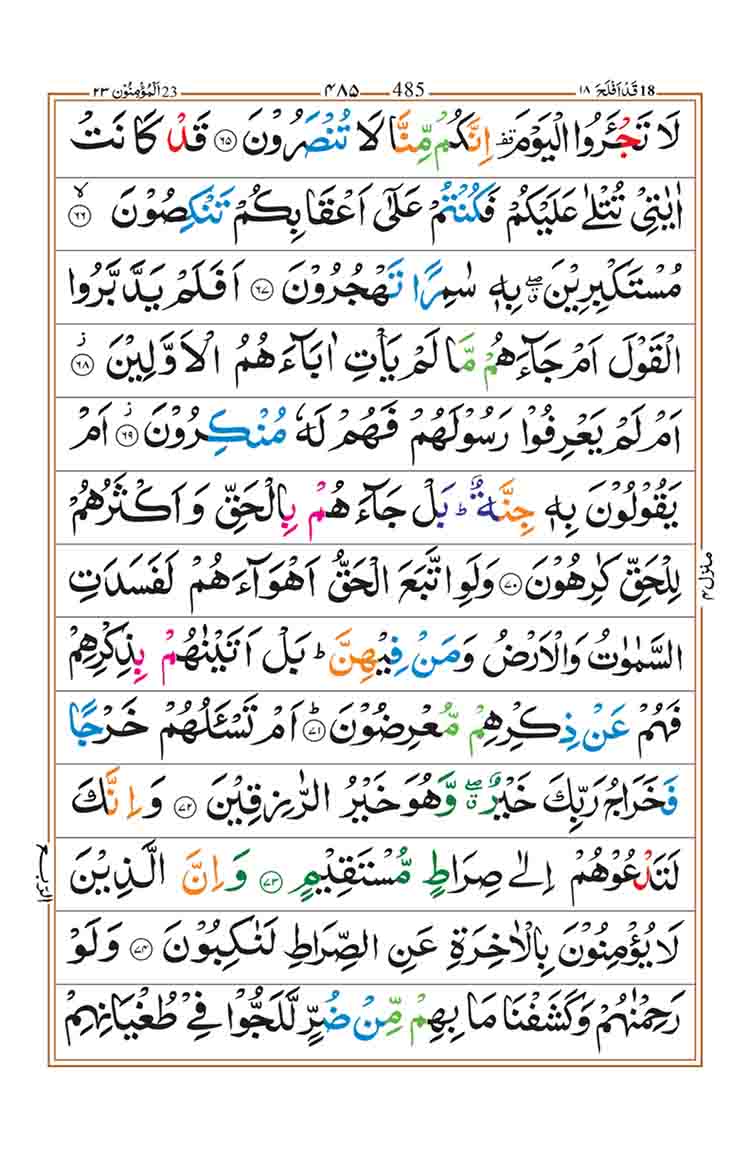 18 قَدْ اَفْلَحَ ١٨ 485 ۴۸۵ 23 اَلْمُؤْمِنُوْن ٢٣
لَا تَجْـَٔرُوا الْيَوْمَ ۫ اِنَّكُمْ مِّنَّا لَا تُنْصَرُوْنَ ۝۶۵ قَدْ كَانَتْ
اٰيٰتِيْ تُتْلٰى عَلَيْكُمْ فَكُنْتُمْ عَلٰٓى اَعْقَابِكُمْ تَنْكِصُوْنَ ۝۶۶ۙ
مُسْتَكْبِرِيْنَ ۖۗ بِهٖ سٰمِرًا تَهْجُرُوْنَ ۝۶۷ اَفَلَمْ يَدَّبَّرُوا
الْقَوْلَ اَمْ جَآءَهُمْ مَّا لَمْ يَاْتِ اٰبَآءَهُمُ الْاَوَّلِيْنَ ۝۶۸ز
اَمْ لَمْ يَعْرِفُوْا رَسُوْلَهُمْ فَهُمْ لَهٗ مُنْكِرُوْنَ ۝۶۹ز اَمْ
يَقُوْلُوْنَ بِهٖ جِنَّةٌ ؕ بَلْ جَآءَهُمْ بِالْحَقِّ وَاَكْثَرُهُمْ
لِلْحَقِّ كٰرِهُوْنَ ۝۷۰ وَلَوِ اتَّبَعَ الْحَقُّ اَهْوَآءَهُمْ لَفَسَدَتِ
منزل۴
السَّمٰوٰتُ وَالْاَرْضُ وَمَنْ فِيْهِنَّ ؕ بَلْ اَتَيْنٰهُمْ بِذِكْرِهِمْ
فَهُمْ عَنْ ذِكْرِهِمْ مُّعْرِضُوْنَ ۝۷۱ؕ اَمْ تَسْـَٔلُهُمْ خَرْجًا
فَخَرَاجُ رَبِّكَ خَيْرٌ ۖۗ وَّهُوَ خَيْرُ الرّٰزِقِيْنَ ۝۷۲ وَاِنَّكَ
لَتَدْعُوْهُمْ اِلٰى صِرَاطٍ مُّسْتَقِيْمٍ ۝۷۳ وَاِنَّ الَّذِيْنَ
الرّبع
لَا يُؤْمِنُوْنَ بِالْاٰخِرَةِ عَنِ الصِّرَاطِ لَنٰكِبُوْنَ ۝۷۴ وَلَوْ
رَحِمْنٰهُمْ وَكَشَفْنَا مَا بِهِمْ مِّنْ ضُرٍّ لَّلَجُّوْا فِيْ طُغْيَانِهِمْ